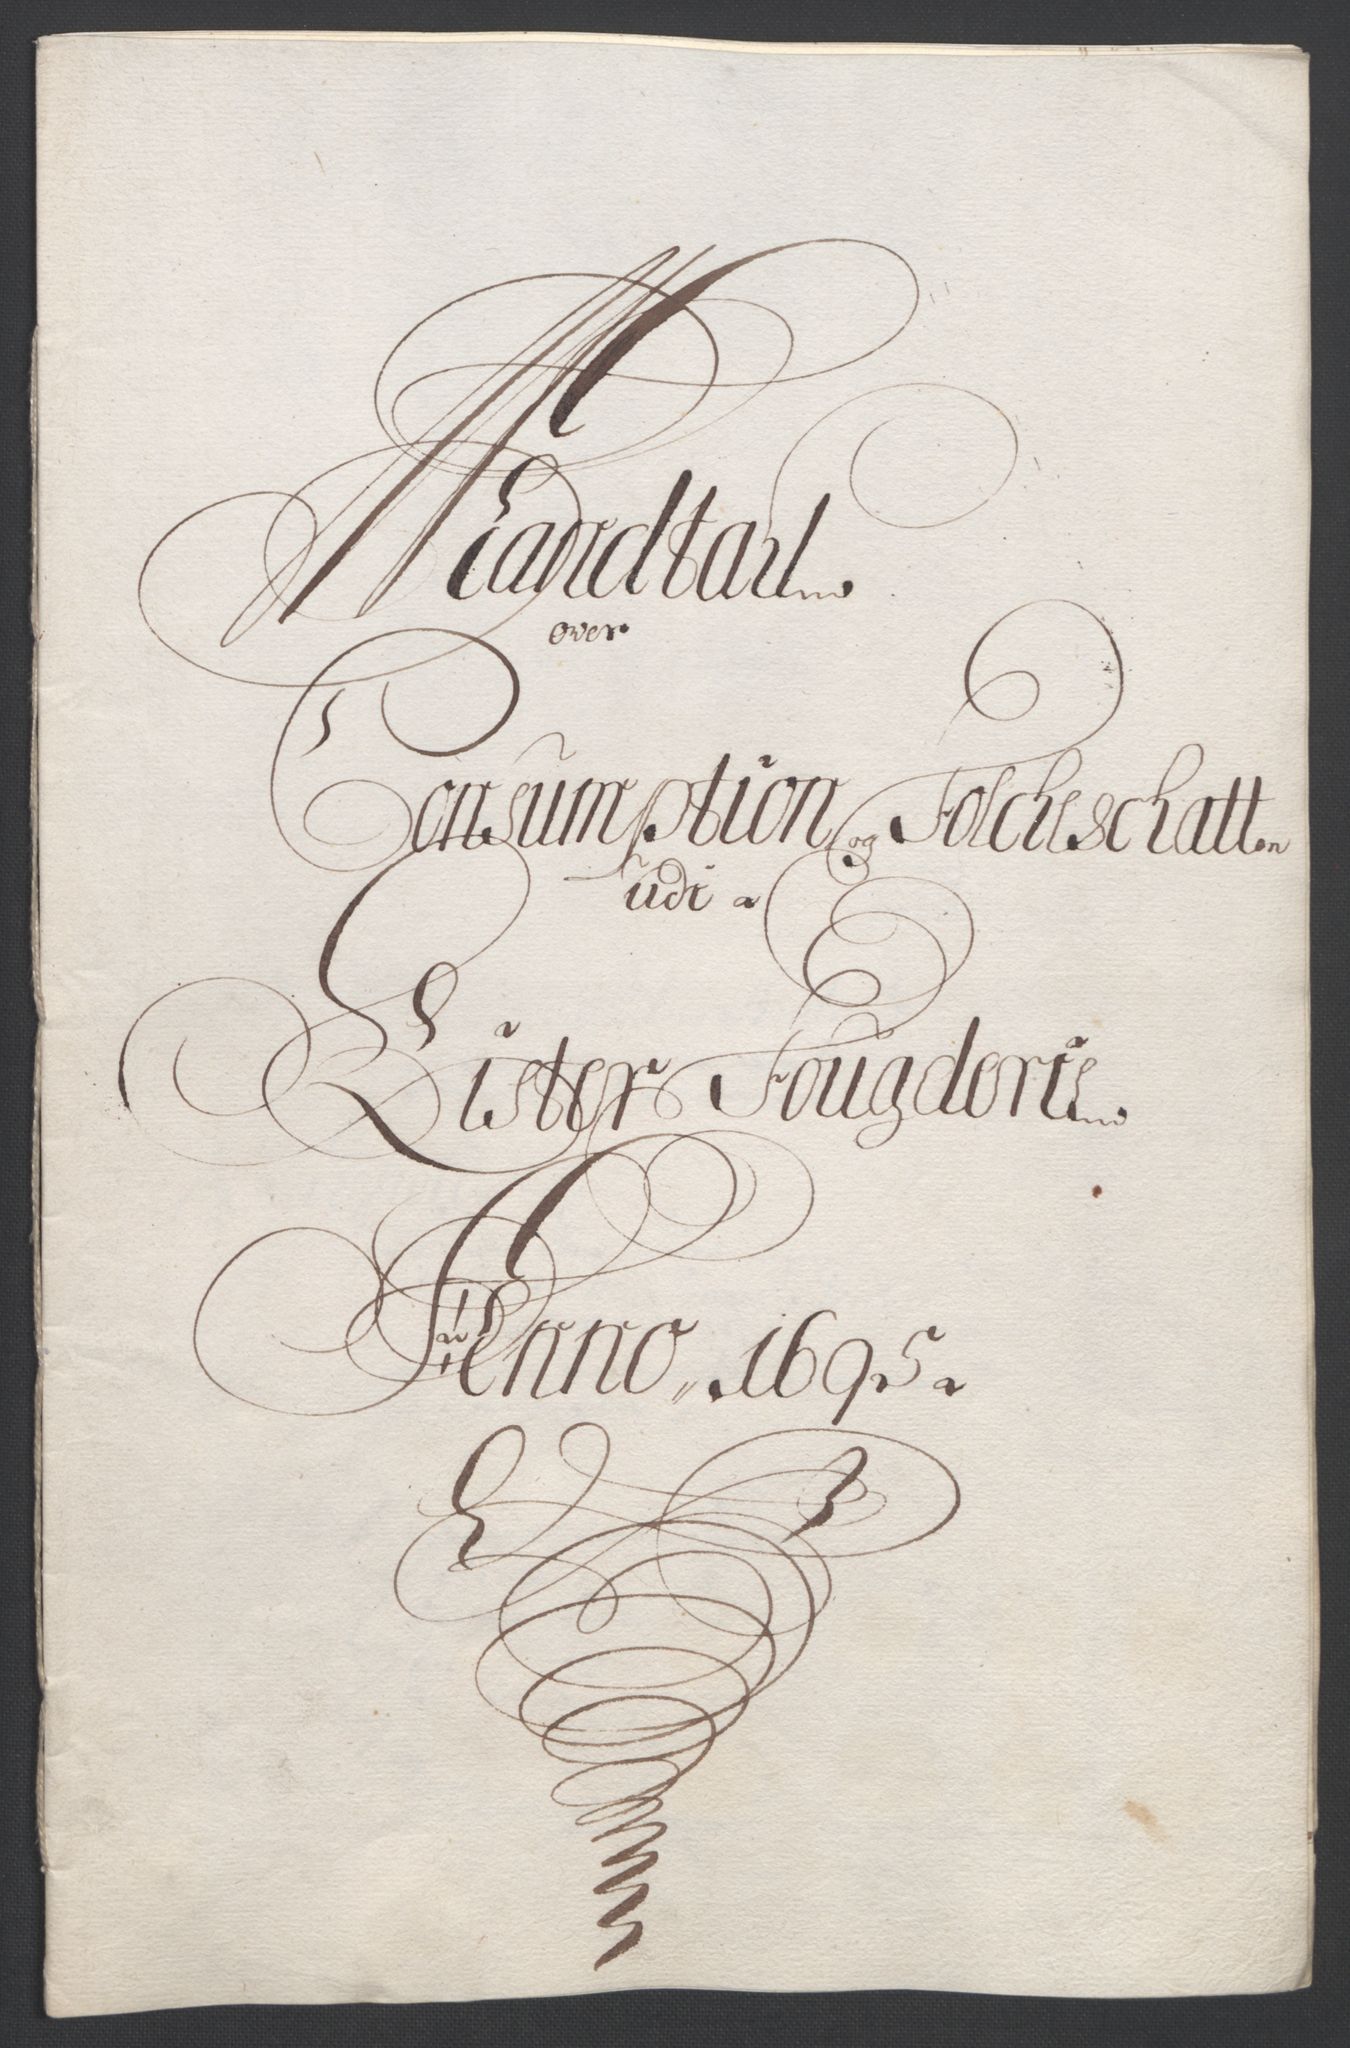 Mandtall
over
Consumption og Folcheschatten
udi
Lister Fougderie
Anno 1695